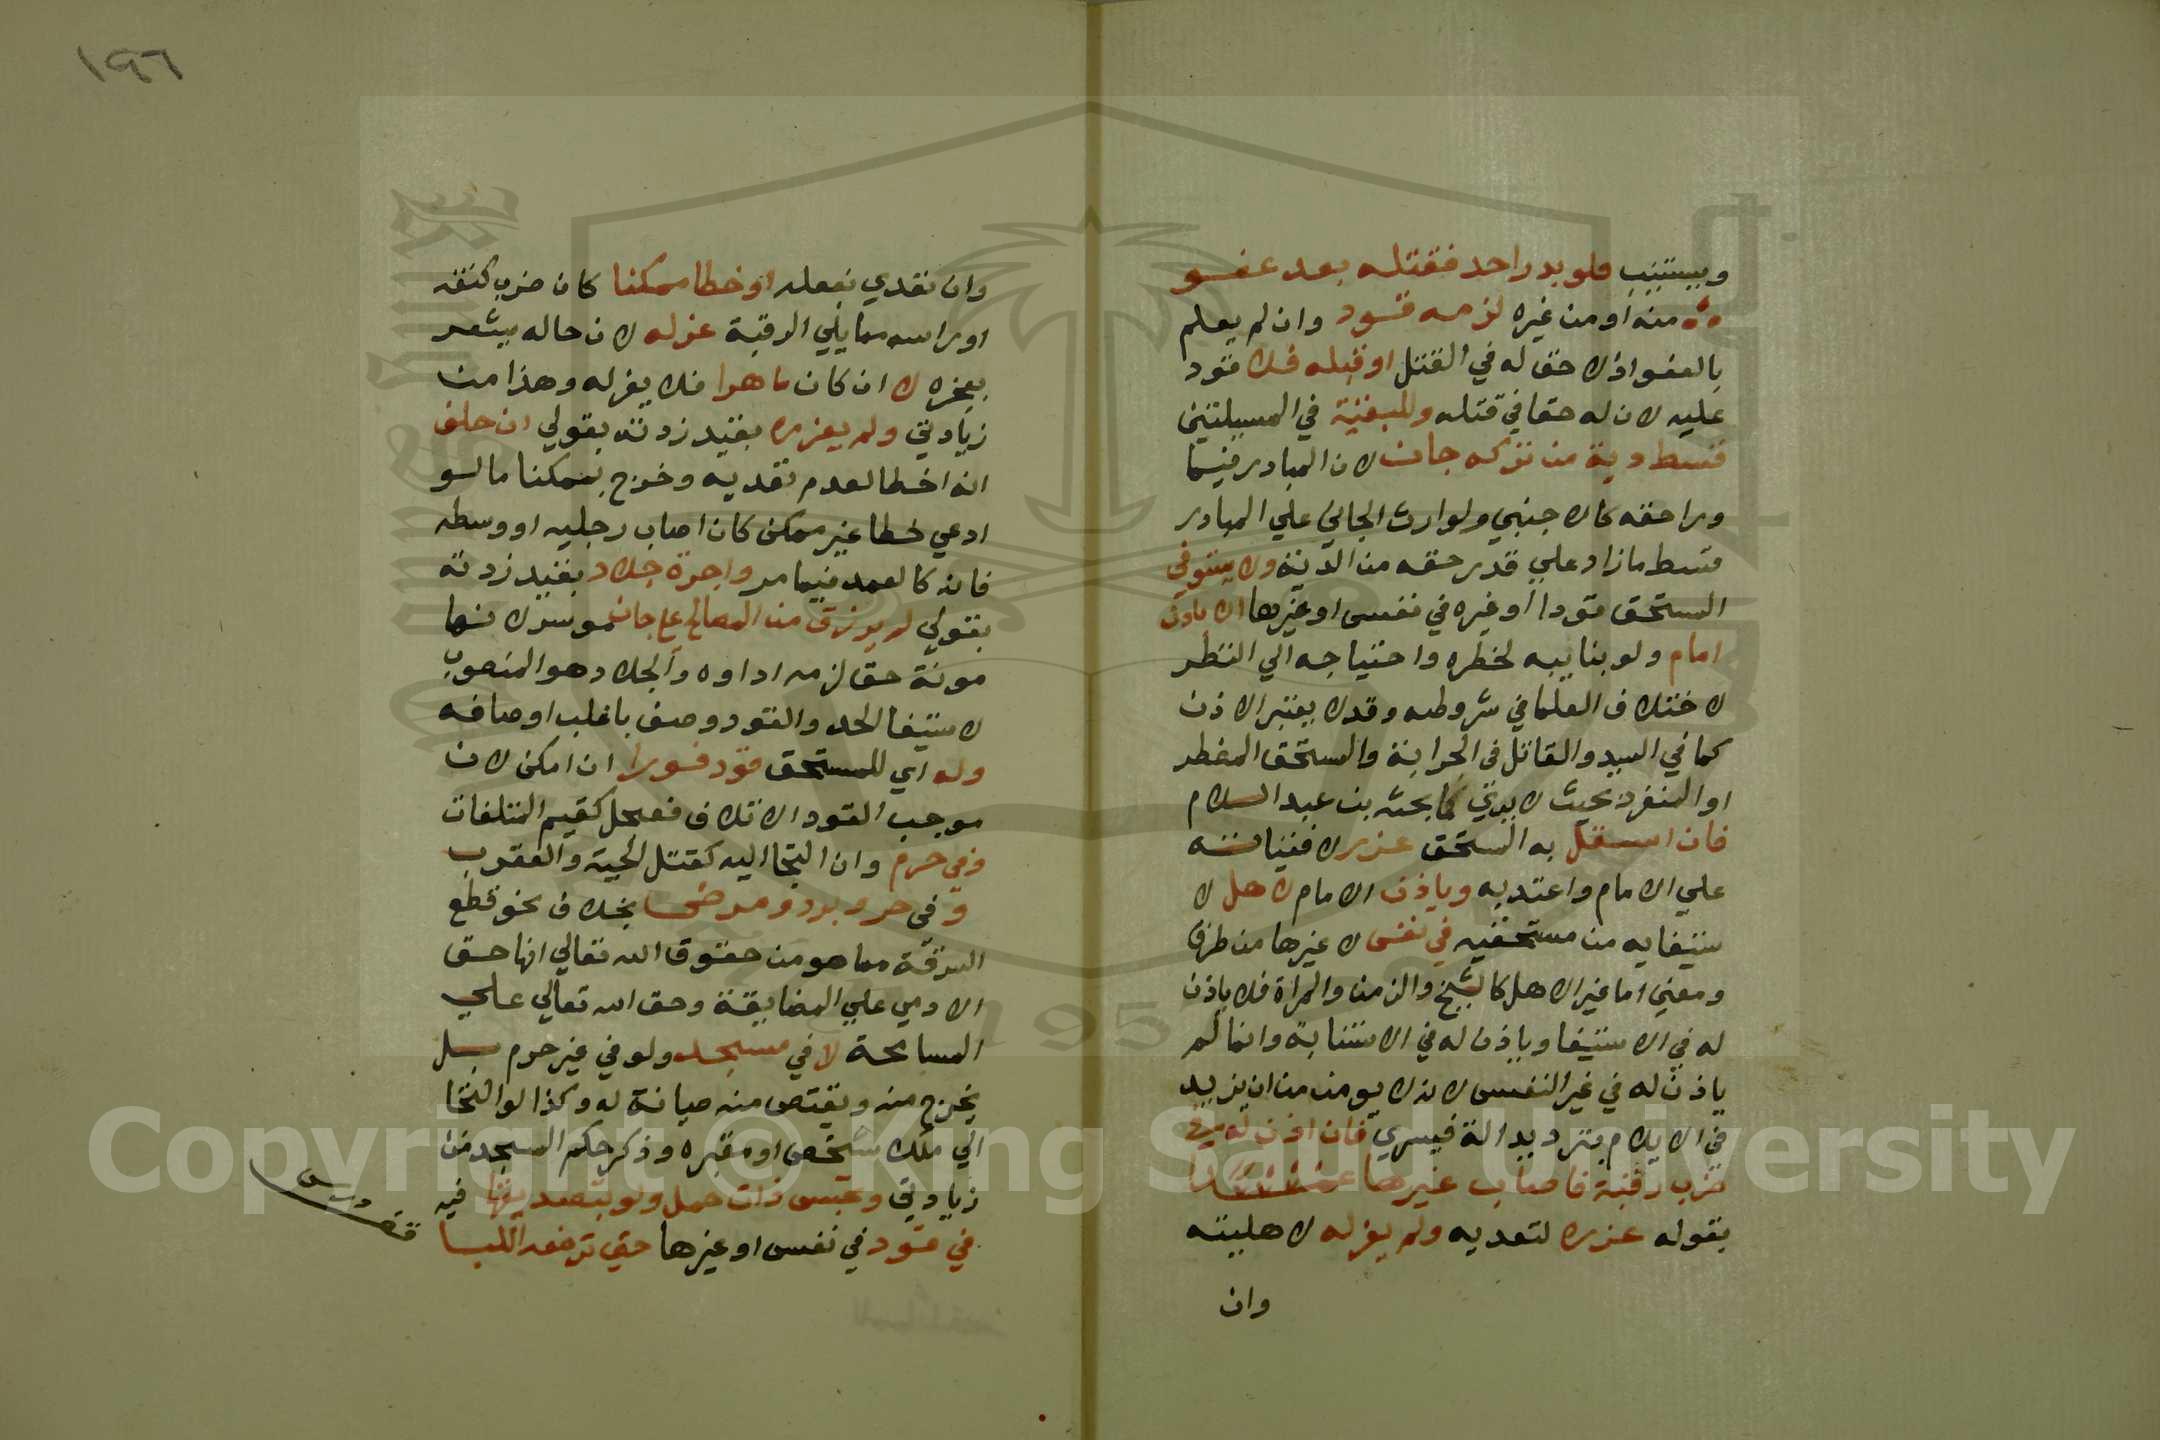 ويستنيب فلو بدر احد فقتله بعد عفو
منه او من غيره لزمه قود وان لم يعلم
بالعفو اذ لا حق له في القتل او قبله فلا قود
عليه لان له حقا في قتله وللبقية في المسيلتين
قسط دية من تركه جان لان المبادر فيما
ورا حقه كالاجنبي ولوارث الجاني علي المبادر
قسط مازاد علي قدر حقه من الدية ولا يستوفي
المستحق قودا او غيره في نفس او غيرها الا باذن
امام ولو بنايبه لخطره واحتياجه الي النظر
لاختلاف العلما في شروطه وقد لا يعتبر الاذن
كما في السيد والقاتل في الحرابة والمستحق المضطر
او المنفرد بحيث لا يري كما بحثه بن عبد السلام
فان استقل به المستحق عزر لافتياته
علي الامام واعتد به وياذن الامام لاهل لا
ستيفايه من مستحقيه في نفس لا غيرها من طرف
ومعني اما غير الاهل كالشيخ والزمن والمراة فلا ياذن
له في الاستيفا وياذن له في الاستنابة وانما لم
ياذن له في غير النفس لانه لا يومن من ان يزيد
في الايلام بترديد الة فيسري فان اذن له في
ضرب رقبة فاصاب غيرها عمدا
بقوله عزره لتعديه ولم يعزله لاهليته
وان
١٩٦
وان تعدي بفعله او خطا ممكنا كان ضرب كتفه
او راسه مما يلي الرقبة عزله لان حاله يشعر
بعجزه لا ان كان ماهرا فلا يعزله وهذا من
زيادتي ولم يعزره بقيد زدته بقولي ان حلف
انه اخطا لعدم تعديه وخرج بممكنا ما لو
ادعي خطا غير ممكن كان اصاب رجليه او وسطه
فانه كالعمد فيما مر واجرة جلاد بقيد زدته
بقولي لم يرزق من المصالح علي جان موسر لانها
مونة حق لزمه اداوه والجلاد هو المنصوب
لاستيفا الحد والقود وصف باغلب اوصافه
وله اي للمستحق قود فورا ان امكن لان
موجب القود الاتلاف فعجل كقيم المتلفات
وفي حرم وان التجا اليه كقتل الحية والعقرب
وفي حر وبرد ومرض بخلاف نحو قطع
السرقة مما هو من حقوق الله تعالي انها حق
الادمي علي المضايقة وحق الله تعالي علي
المسامحة لا في مسجد ولو في غير حرم بل
يخرج منه ويقتص منه صيانة له وكذا لو التجا
الي ملك شخص او مقبره وذكر حكم المسجد من
زيادتي وتحبس ذات حمل ولو بتصديقها فيه
في قود في نفس او غيرها حتي ترضعه اللبا